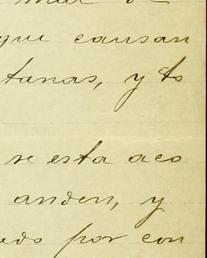 que causan
tanas, y to
se esta aco
anden, y
ado por con